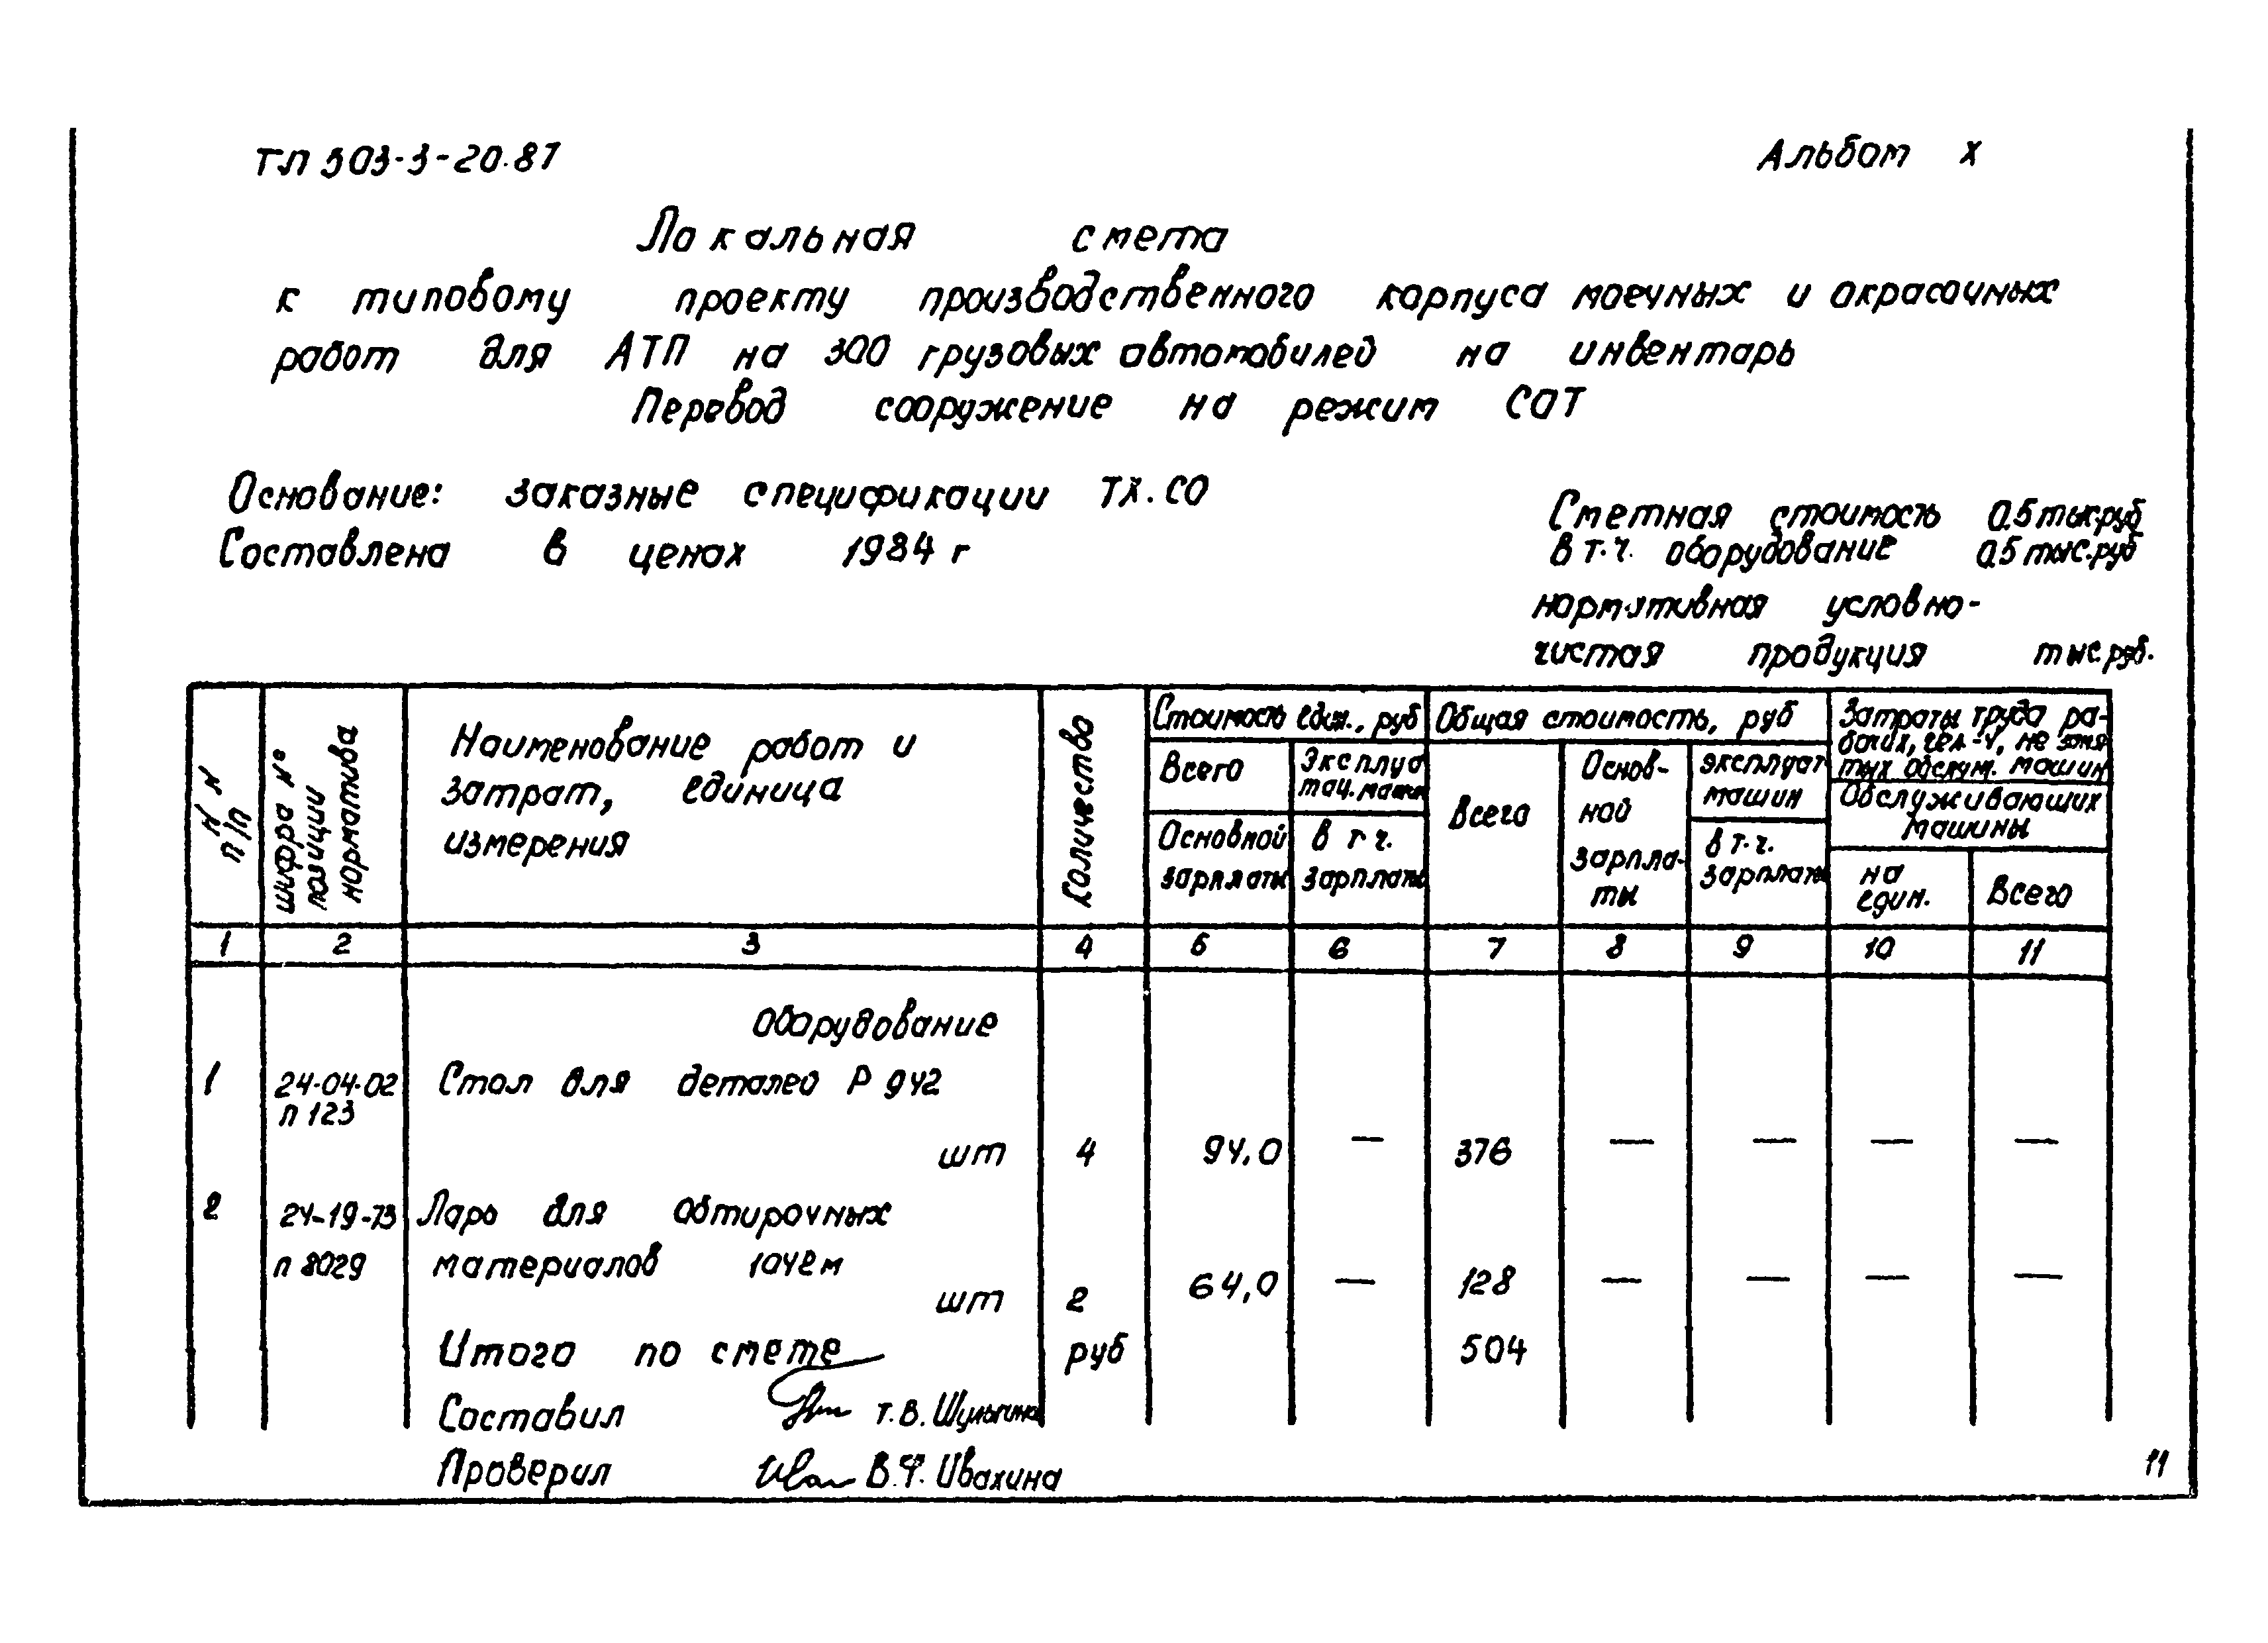 ТП 503-3-20.87 Альбом X
Локальная смета
к типовому проекту производственного корпуса моечных и окрасочных
работ для АТП на 300 грузовых автомобилей на инвентарь
Перевод сооружение на режим СОТ
Основание: заказные спецификации ТХ.СО
Составлена в ценах 1984 г
Сметная стоимость 0.5 тыс.руб
в т.ч. оборудование 0.5 тыс.руб
нормативная условно-
чистая продукция тыс.руб.
N N
п/п
шифра №
позиции
норматива
Наименование работ и
затрат, единица
измерения
Количество
Стоимость един., руб
Всего
Эксплуа
тац. машин
Основной
зарплаты
в т ч.
зарплаты
Общая стоимость, руб
Всего
Основ-
ной
зарпла-
ты
эксплуат
машин
в т.ч.
зарплаты
Затраты труда ра-
бочих, чел-ч, не заня
тых обслуж. машин
Обслуживающих
машины
на
един.
Всего
1 2 3 4 5 6 7 8 9 10 11
Оборудование
1 24-04-02 Стол для деталей Р 942
п 123
шт 4 94,0 — 376 — — — —
2 24-19-73 Ларь для обтирочных
п 8029 материалов
шт 2 64,0 — 128 — — — —
Итого по смете руб 504
Составил Т.В. Шульгина
Проверил В.Ф. Ивахина
11